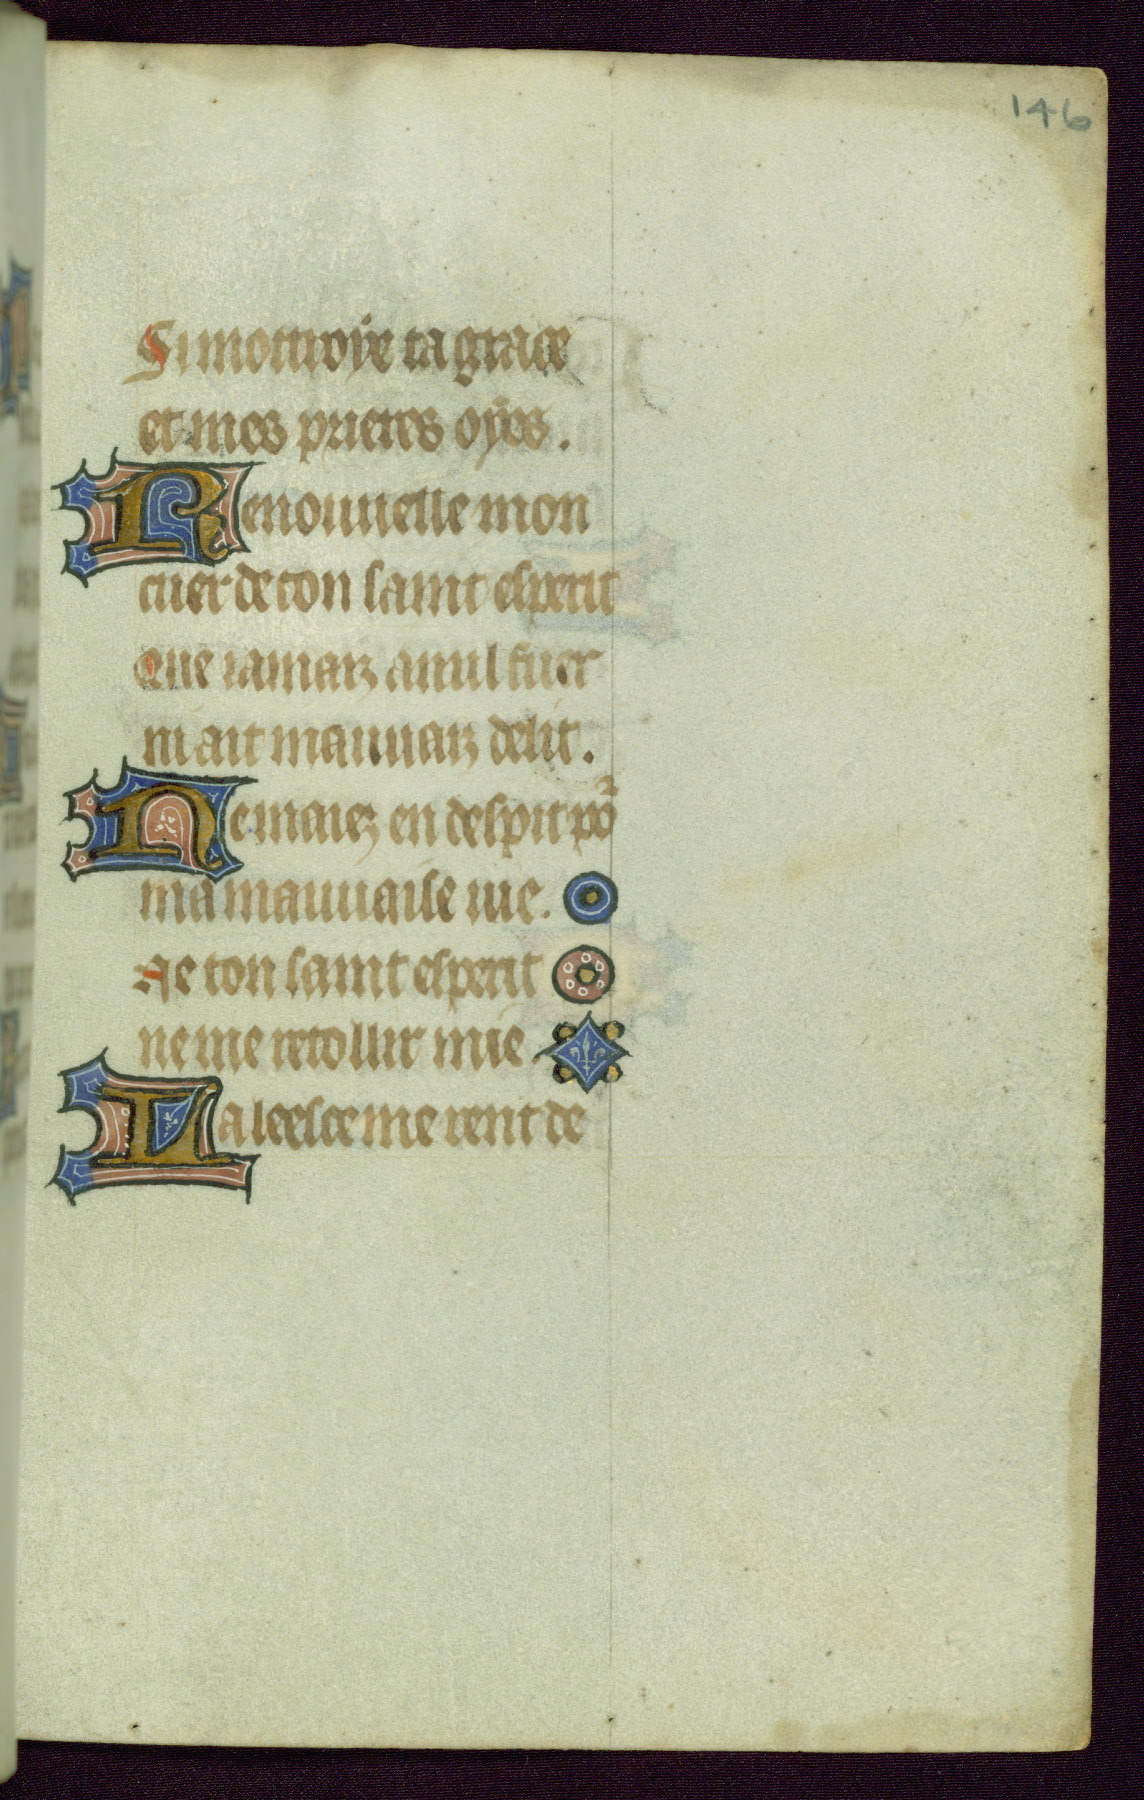 146
Si mottroÿe ta grace
et mes prieres oÿes.
Renouuelle mon
cuer de ton saint esperit
Que iamaiz a nul fuer
ni ait mauuaiz delit.
Ne maiez en despit po᷑
ma mauuaise uie.
Ne ton saint esperit
ne me retollir mie.
La leesce me rent de